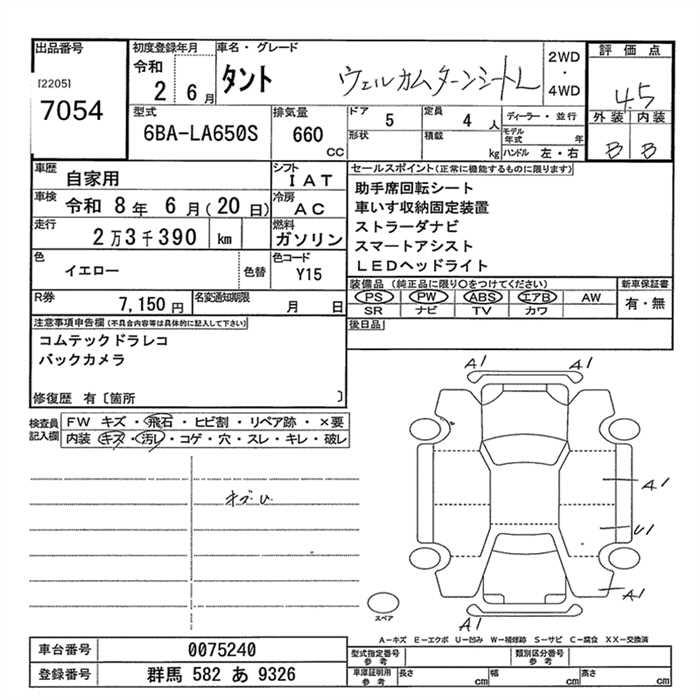 出品番号
[2205]
7054
初度登録年月
令和
2 6月
車名・グレード
タント ウェルカムターンシートL
2WD
・
4WD
評価点
4.5
外装 内装
B B
型式
6BA-LA650S
排気量
660
cc
ドア
5
定員
4 人
形状
積載
kg
ディーラー・並行
モデル
年式 年
ハンドル 左・右
車歴
自家用
シフト
IAT
車検
令和 8年 6月(20日)
冷房
AC
走行
2万3千390 km
燃料
ガソリン
色
イエロー
色替
色コード
Y15
R券
7,150円
名変通知期限
月 日
セールスポイント(正常に機能するものに限ります)
助手席回転シート
車いす収納固定装置
ストラーダナビ
スマートアシスト
LEDヘッドライト
装備品 (純正品に限り○をつけてください)
PS PW ABS エアB AW
SR ナビ TV カワ
新車保証書
有・無
後日品
注意事項申告欄(不具合内容等は具体的に記入して下さい)
コムテックドラレコ
バックカメラ
修復歴 有〔箇所 〕
検査員
記入欄
FW キズ・飛石・ヒビ割・リペア跡・×要
内装 キズ・汚レ・コゲ・穴・スレ・キレ・破レ
A1 A1
A1
U1
A1
A1
スペア
A-キズ E-エクボ U-凹み W-補修跡 S-サビ C-腐食 XX-交換済
車台番号
0075240
登録番号
群馬 582 あ 9326
型式指定番号
参考
類別区分番号
参考
車庫証明用
参考
長さ cm
幅 cm
高さ cm